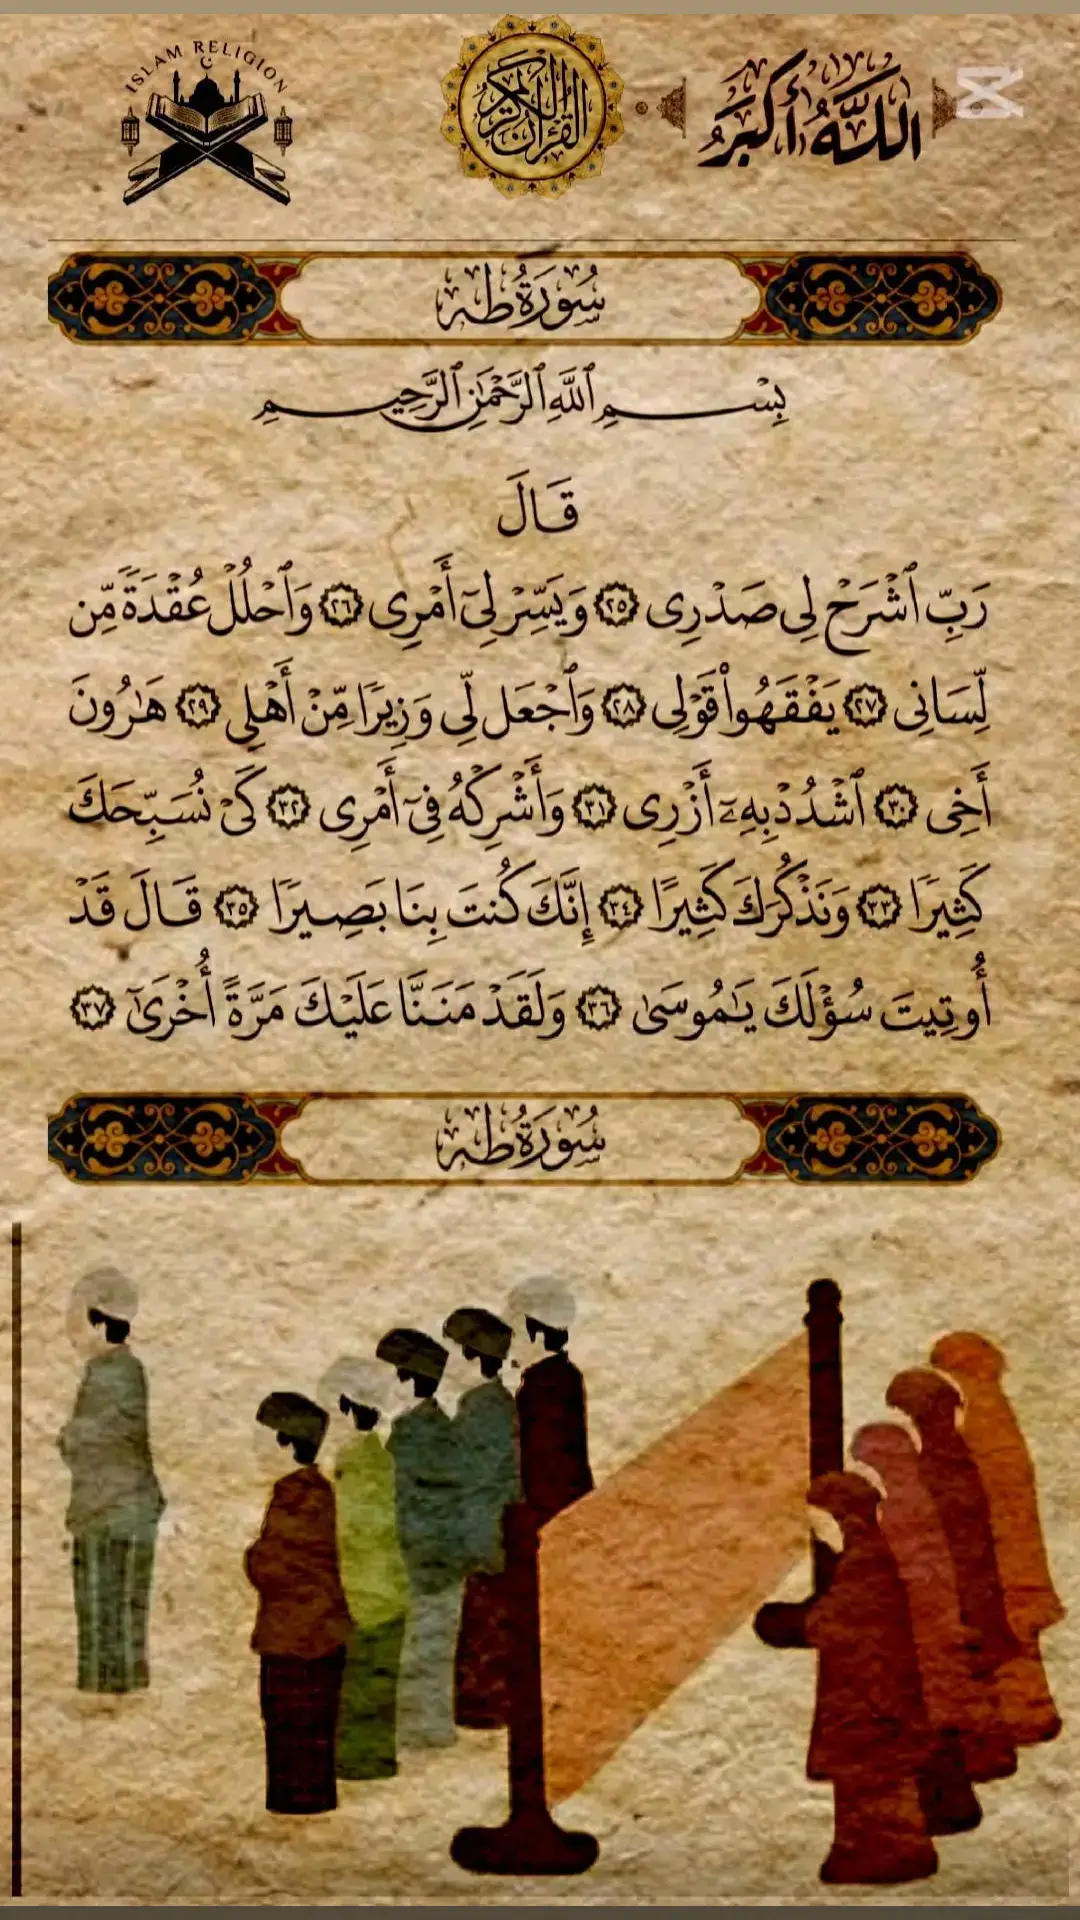 ISLAM RELIGION
القرآن الكريم
اللَّهُ أَكْبَرُ
سُورَةُ طه
بِسْمِ ٱللَّهِ ٱلرَّحْمَٰنِ ٱلرَّحِيمِ
قَالَ
رَبِّ ٱشْرَحْ لِى صَدْرِى ٢٥ وَيَسِّرْ لِىٓ أَمْرِى ٢٦ وَٱحْلُلْ عُقْدَةً مِّن
لِّسَانِى ٢٧ يَفْقَهُوا۟ قَوْلِى ٢٨ وَٱجْعَل لِّى وَزِيرًا مِّنْ أَهْلِى ٢٩ هَٰرُونَ
أَخِى ٣٠ ٱشْدُدْ بِهِۦٓ أَزْرِى ٣١ وَأَشْرِكْهُ فِىٓ أَمْرِى ٣٢ كَىْ نُسَبِّحَكَ
كَثِيرًا ٣٣ وَنَذْكُرَكَ كَثِيرًا ٣٤ إِنَّكَ كُنتَ بِنَا بَصِيرًا ٣٥ قَالَ قَدْ
أُوتِيتَ سُؤْلَكَ يَٰمُوسَىٰ ٣٦ وَلَقَدْ مَنَنَّا عَلَيْكَ مَرَّةً أُخْرَىٰٓ ٣٧
سُورَةُ طه